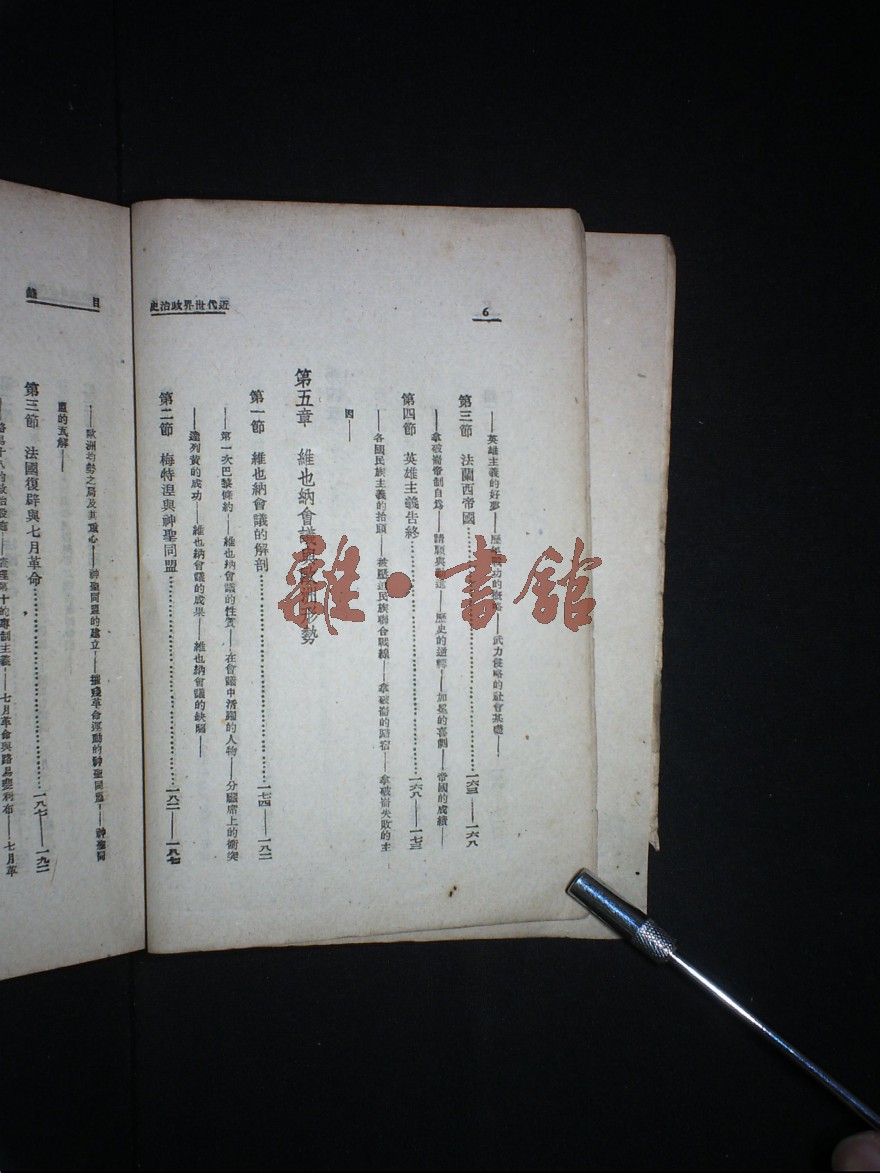 近代世界政治史
6
——英雄主義的好夢——歷年戰功的檢略——武力侵略的社會基礎——
第三節 法蘭西帝國 一六三——一六八
——拿破崙帝制自為——請願與勸進——歷史的逆轉——加冕的喜劇——帝國的成績——
第四節 英雄主義告終 一六八——一七三
——各國民族主義的抬頭——被壓迫民族聯合戰線——拿破崙的歸宿——拿破崙失敗的主
因——
第五章 維也納會議與歐洲形勢
第一節 維也納會議的解剖 一七四——一八二
——第一次巴黎條約——維也納會議的性質——在會議中活躍的人物——分贓席上的衝突
——達列黃的成功——維也納會議的成果——維也納會議的缺陷——
第二節 梅特涅與神聖同盟 一八二——一八七
目錄
——歐洲均勢之局及其重心——神聖同盟的建立——摧殘革命運動的神聖同盟——神聖同
盟的瓦解——
第三節 法國復辟與七月革命 一八七——一九二
——路易十八的政治設施——查理第十的專制主義——七月革命與路易腓利布——七月革
雜·書館